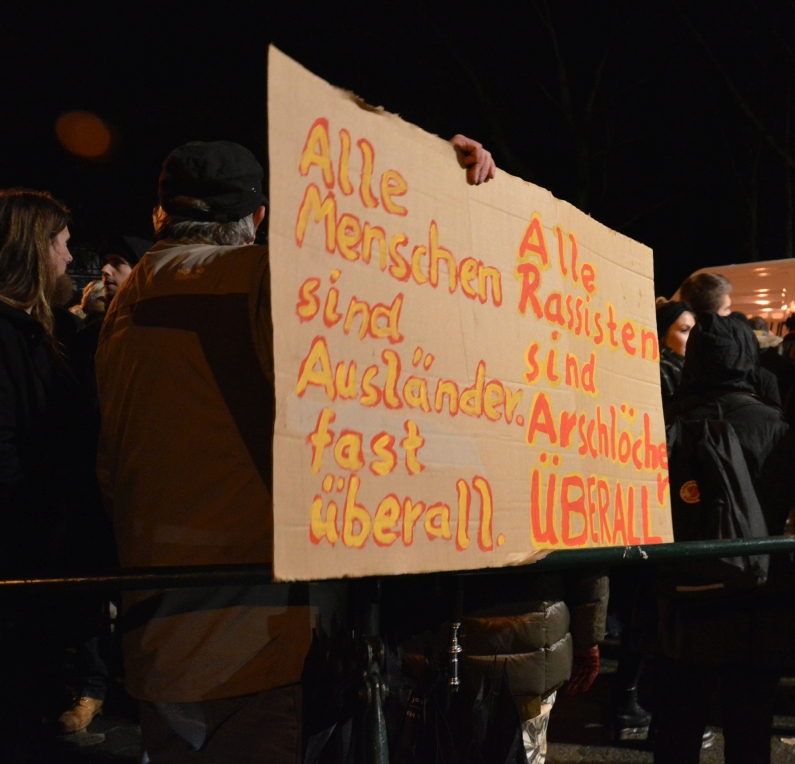 Alle
Menschen
sind
Ausländer.
fast
überall.
Alle
Rassisten
sind
Arschlöcher
ÜBERALL